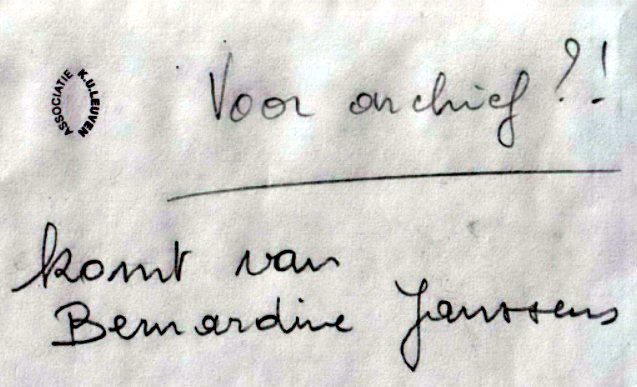 ASSOCIATIE
K.U.LEUVEN
Voor archief ?!
komt van
Bernardine Janssens